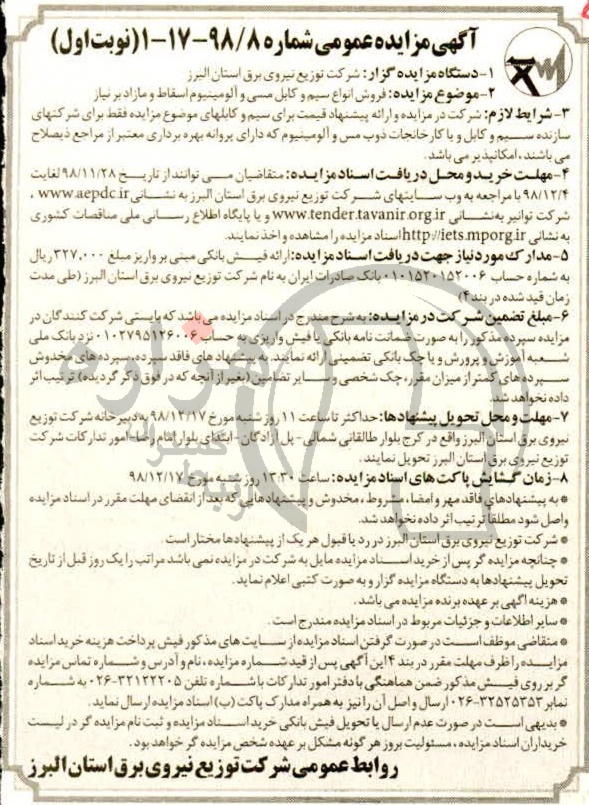 آگهی مزایده عمومی شماره ۹۸/۸-۱۷-۱ (نوبت اول)
۱-دستگاه مزایده گزار: شرکت توزیع نیروی برق استان البرز
۲-موضوع مزایده: فروش انواع سیم و کابل مسی و آلومینیوم اسقاط و مازاد بر نیاز
۳-شرایط لازم: شرکت در مزایده و ارائه پیشنهاد قیمت برای سیم و کابلهای موضوع مزایده فقط برای شرکتهای
سازنده سیم و کابل و یا کارخانجات ذوب مس و آلومینیوم که دارای پروانه بهره برداری معتبر از مراجع ذیصلاح
می باشند، امکانپذیر می باشد.
۴-مهلت خرید و محل دریافت اسناد مزایده: متقاضیان می توانند از تاریخ ۹۸/۱۱/۲۸ لغایت
۹۸/۱۲/۴ با مراجعه به وب سایتهای شرکت توزیع نیروی برق استان البرز به نشانی www.aepdc.ir ،
شرکت توانیر به نشانی www.tender.tavanir.org.ir و یا پایگاه اطلاع رسانی ملی مناقصات کشوری
به نشانی http://iets.mporg.ir اسناد مزایده را مشاهده و اخذ نمایند.
۵-مدارک مورد نیاز جهت دریافت اسناد مزایده: ارائه فیش بانکی مبنی بر واریز مبلغ ۳۲۷,۰۰۰ ریال
به شماره حساب ۰۱۰۱۵۲۰۱۵۲۰۰۶ بانک صادرات ایران به نام شرکت توزیع نیروی برق استان البرز (طی مدت
زمان قید شده در بند ۴)
۶-مبلغ تضمین شرکت در مزایده: به شرح مندرج در اسناد مزایده می باشد که بایستی شرکت کنندگان در
مزایده سپرده مذکور را به صورت ضمانت نامه بانکی یا فیش واریزی به حساب ۰۱۰۲۷۹۵۱۲۶۰۰۶ نزد بانک ملی
شعبه آموزش و پرورش و یا چک بانکی تضمینی ارائه نمایند. به پیشنهاد های فاقد سپرده، سپرده های مخدوش
سپرده های کمتر از میزان مقرر، چک شخصی و سایر تضامین (بغیر از آنچه که در فوق ذکر گردیده) ترتیب اثر
داده نخواهد شد.
۷-مهلت و محل تحویل پیشنهادها: حداکثر تا ساعت ۱۱ روز شنبه مورخ ۹۸/۱۲/۱۷ به دبیرخانه شرکت توزیع
نیروی برق استان البرز واقع در کرج بلوار طالقانی شمالی - پل آزادگان - ابتدای بلوار امام رضا - امور تدارکات شرکت
توزیع نیروی برق استان البرز تحویل نمایند.
۸-زمان گشایش پاکت های اسناد مزایده: ساعت ۱۳:۳۰ روز شنبه مورخ ۹۸/۱۲/۱۷
* به پیشنهادهای فاقد مهر و امضا، مشروط، مخدوش و پیشنهادهایی که بعد از انقضای مهلت مقرر در اسناد مزایده
واصل شود مطلقا ترتیب اثر داده نخواهد شد.
* شرکت توزیع نیروی برق استان البرز در رد یا قبول هر یک از پیشنهادها مختار است.
* چنانچه مزایده گر پس از خرید اسناد مزایده مایل به شرکت در مزایده نمی باشد مراتب را یک روز قبل از تاریخ
تحویل پیشنهادها به دستگاه مزایده گزار و به صورت کتبی اعلام نماید.
* هزینه آگهی بر عهده برنده مزایده می باشد.
* سایر اطلاعات و جزئیات مربوط در اسناد مزایده مندرج است.
* متقاضی موظف است در صورت گرفتن اسناد مزایده از سایت های مذکور فیش پرداخت هزینه خرید اسناد
مزایده را ظرف مهلت مقرر در بند ۴ این آگهی پس از قید شماره مزایده، نام و آدرس و شماره تماس مزایده
گر بر روی فیش مذکور ضمن هماهنگی با دفتر امور تدارکات با شماره تلفن ۳۲۱۲۲۲۰۵-۰۲۶ به شماره
نمابر ۳۲۵۲۵۳۵۳-۰۲۶ ارسال و اصل آن را نیز به همراه مدارک پاکت (ب) اسناد مزایده ارسال نماید.
* بدیهی است در صورت عدم ارسال یا تحویل فیش بانکی خرید اسناد مزایده و ثبت نام مزایده گر در لیست
خریداران اسناد مزایده، مسئولیت بروز هر گونه مشکل بر عهده شخص مزایده گر خواهد بود.
روابط عمومی شرکت توزیع نیروی برق استان البرز